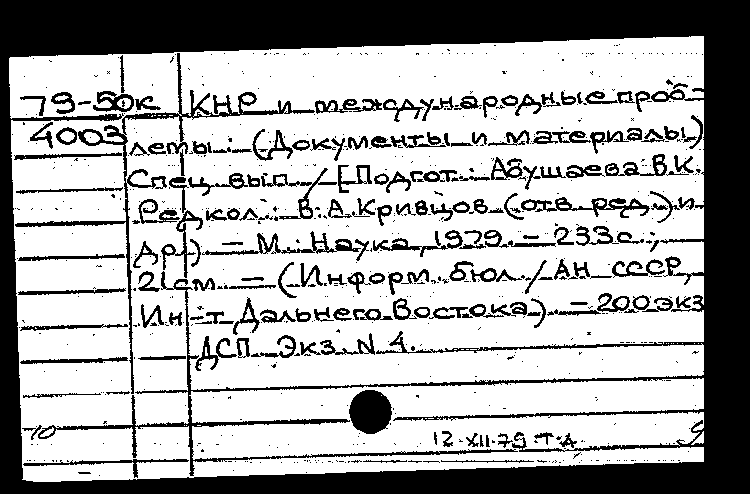 79-50к КНР и международные проб-
4003 лемы: (Документы и материалы)
Спец. вып. / [Подгот.: Абушаева В.К.
Редкол.: В.А.Кривцов (отв. ред.) и
др.) - М.: Наука, 1979. - 233с.;
21см. - (Информ. бюл. / АН СССР,
Ин-т Дальнего Востока). - 200экз
ДСП Экз. N 4.
10 12.XII.79 Т.А.